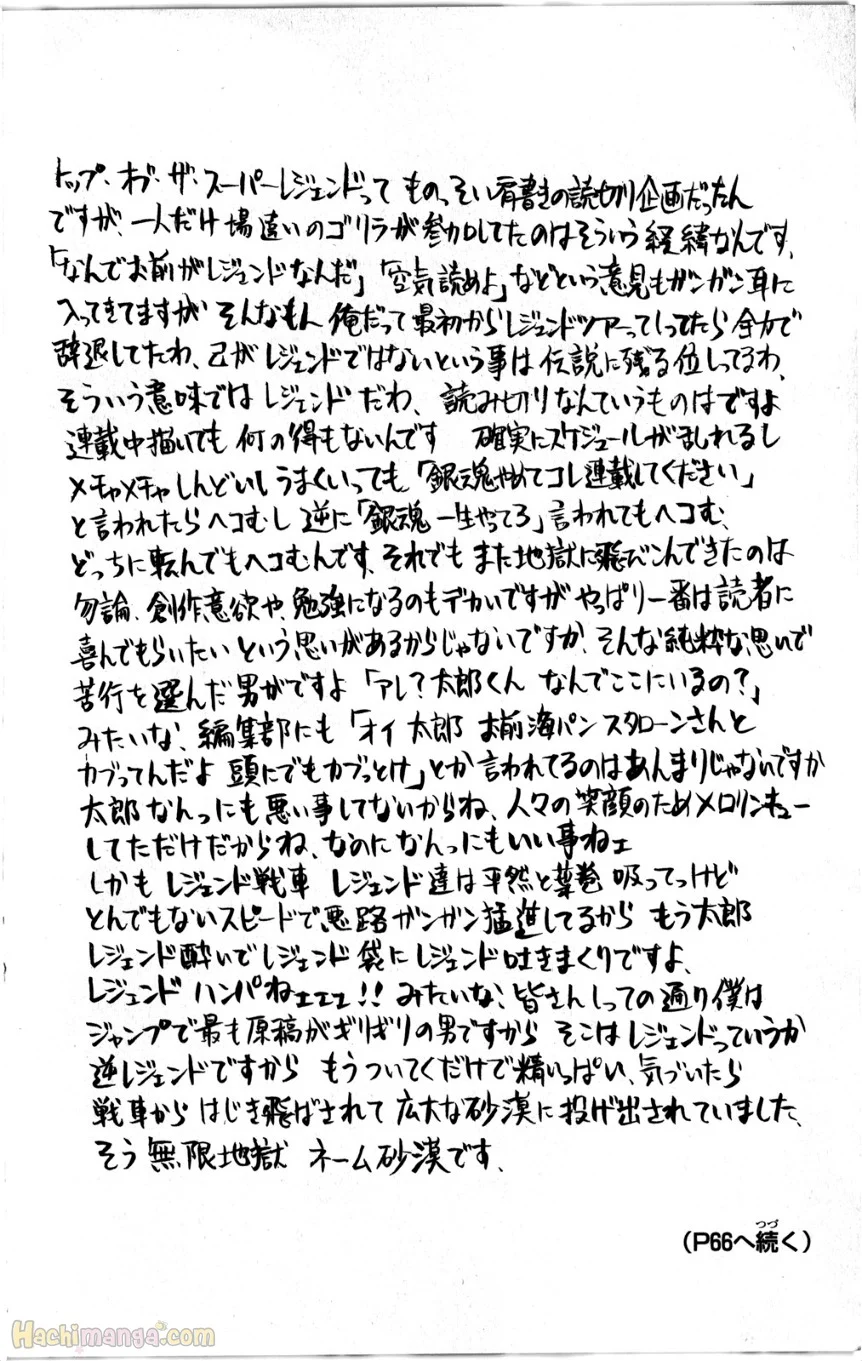 トップ・オブ・ザ・スーパーレジェンドって ものっそい肩書きの読切り企画だったん
ですが、一人だけ場違いのゴリラが参加してたのはそういう経緯なんです、
「なんでお前がレジェンドなんだ」「空気読めよ」などという意見もガンガン耳に
入ってきてますが そんなもん 俺だって最初からレジェンドツアーってしってたら全力で
辞退してたわ、己がレジェンドではないという事は伝説に残る位しってるわ、
そういう意味では レジェンド だわ、読み切りなんていうものはですよ
連載中描いても 何の得もないんです 確実にスケジュールがましれるし
メチャメチャしんどいし うまくいっても「銀魂やめてコレ連載してください」
と言われたらヘコむし 逆に「銀魂一生やってろ」言われてもヘコむ、
どっちに転んでもヘコむんです、それでも また地獄に飛びこんできたのは
勿論、創作意欲や、勉強になるのもデカいですが やっぱり一番は読者に
喜んでもらいたい という思いがあるからじゃないですか、そんな純粋な思いで
苦行を選んだ男がですよ「アレ?太郎くん なんでここにいるの?」
みたいな、編集部にも「オイ太郎 お前海パン スタローンさんと
カブってんだよ 頭にでもカブっとけ」とか言われてるのはあんまりじゃないですか
太郎なんっにも悪い事してないからね、人々の笑顔のためメロリンキュー
してただけだからね、なのに なんっにもいい事ねェ
しかも レジェンド戦車 レジェンド達は平然と葉巻 吸ってっけど
とんでもないスピードで悪路ガンガン猛進してるから もう太郎
レジェンド酔いでレジェンド袋にレジェンド吐きまくりですよ、
レジェンド ハンパねェェェ!! みたいな、皆さんしっての通り僕は
ジャンプで最も原稿がギリギリの男ですから そこはレジェンドっていうか
逆レジェンドですから もうついてくだけで精いっぱい、気づいたら
戦車から はじき飛ばされて 広大な砂漠に投げ出されていました、
そう 無限地獄 ネーム砂漠です、
(P66へ続く)
つづ
Hachimanga.com